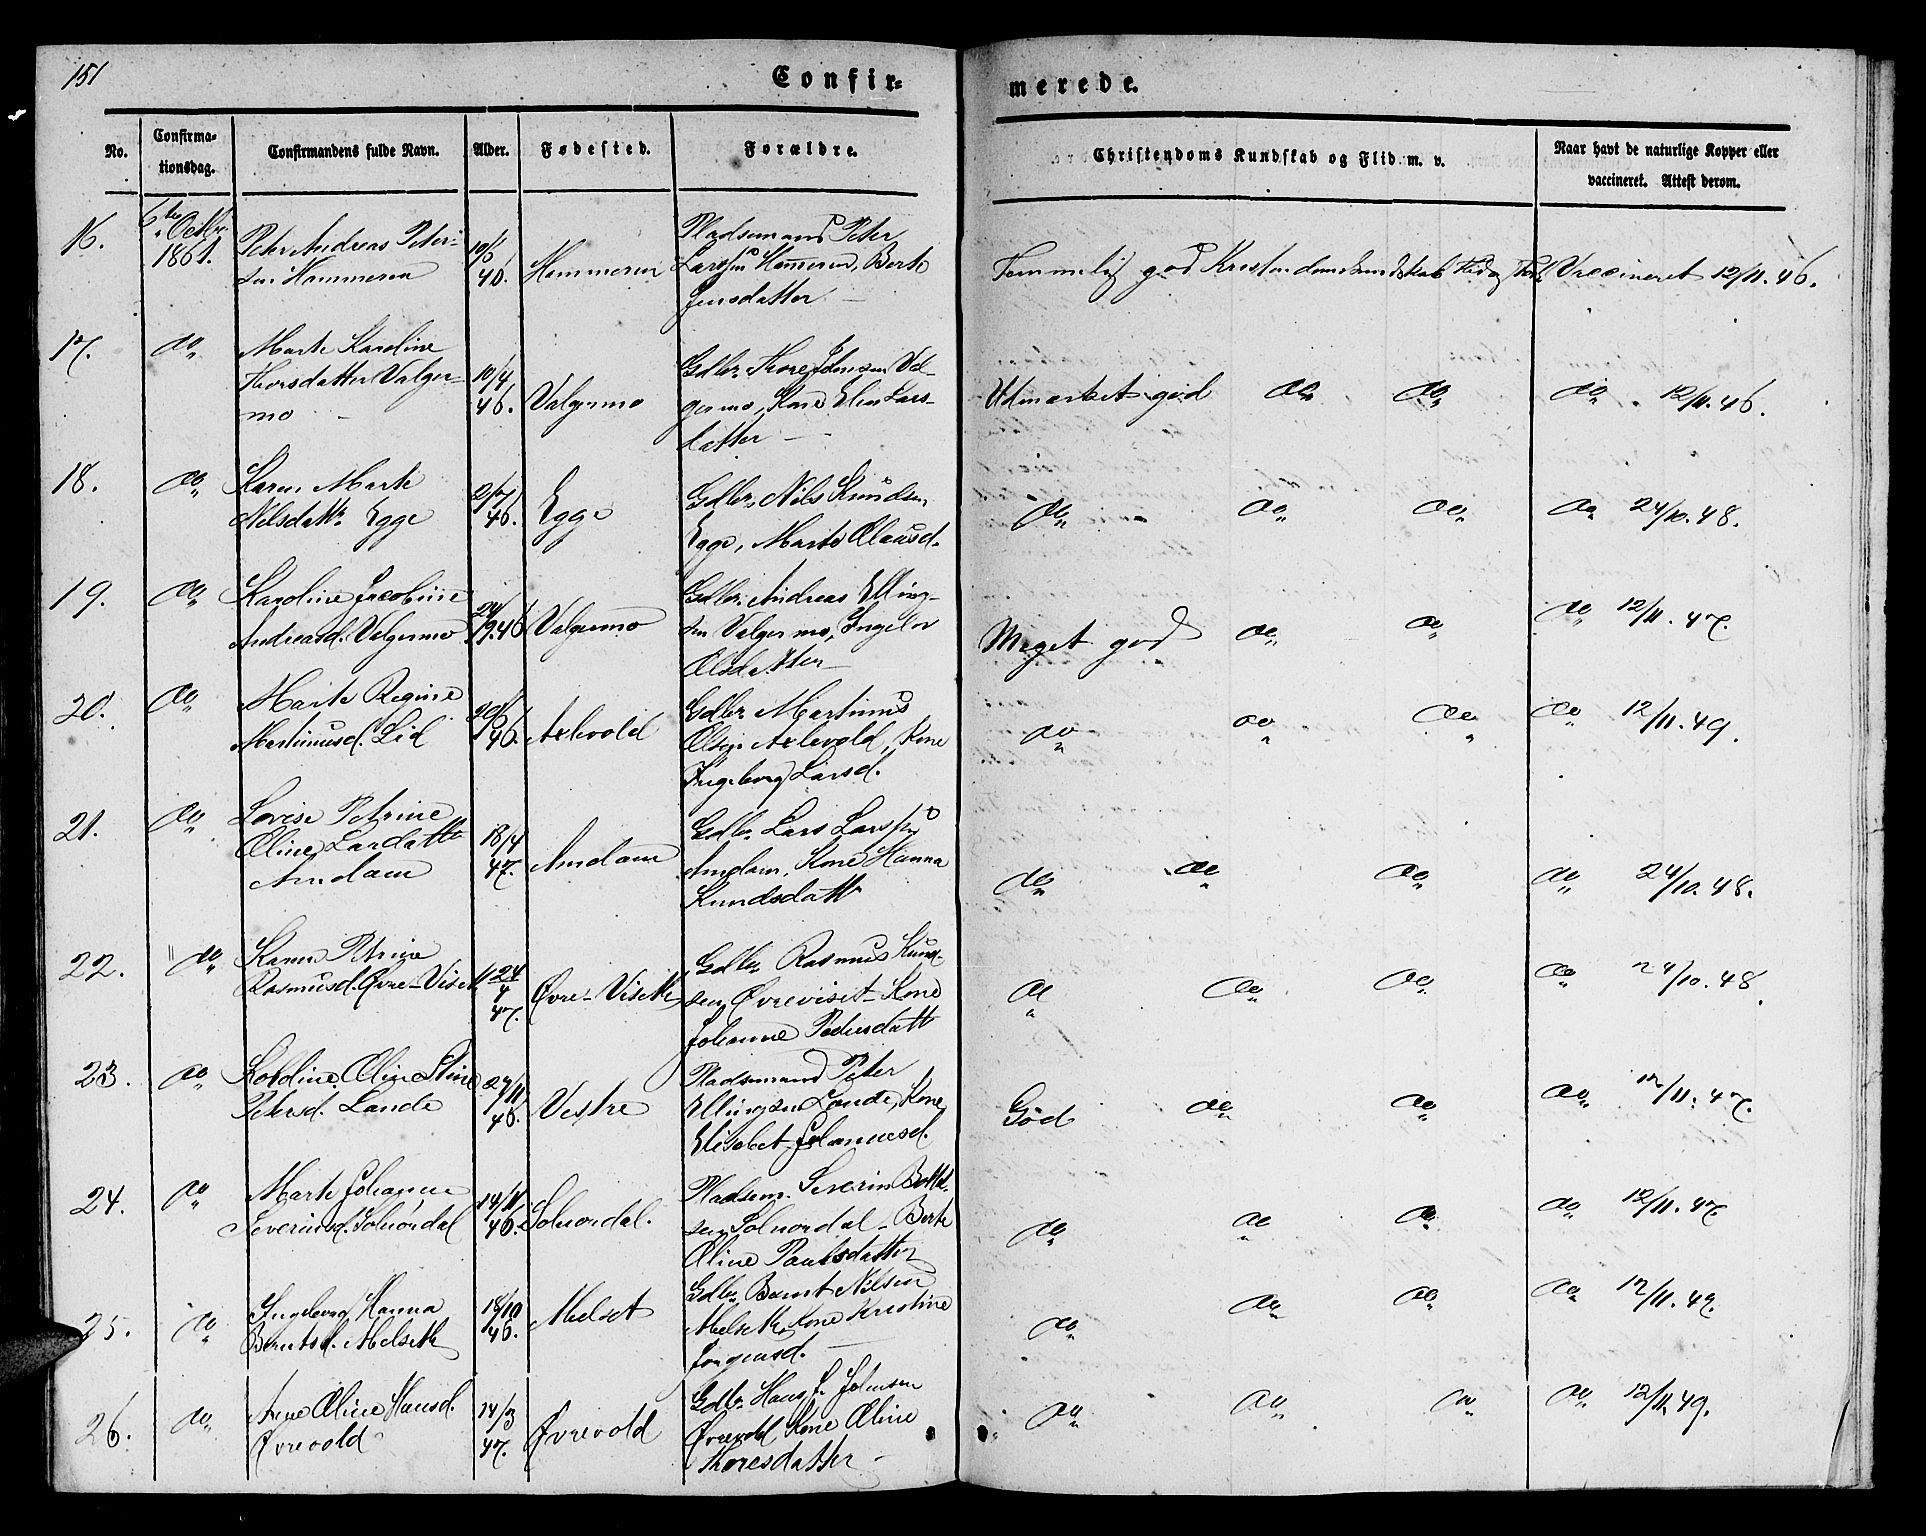 151
Confir-
merede.
No.
Confirma-
tionsdag.
Confirmandens fulde Navn.
Alder.
Fødested.
Forældre.
Christendoms Kundskab og Flid m. v.
Naar havt de naturlige Kopper eller
vaccineret. Attest derom.
16.
6te Octbr
1861.
Peter Andreas Peter-
sen Hammeren
10/6
46.
Hammeren
Pladsemand Peter
Larssen Hammeren, Berte
Jensdatter
Temmelig god Kristendomskundskab Flid og
Vaccineret 12/11. 46.
17.
do
Marte Karoline
Thoresdatter Valger-
mo
10/4
46.
Valgermo
Gdbr. Thore Johnsen Val-
germo, Kone Elen Lars-
datter
Udmærket god do do
do 12/11. 46.
18.
do
Karen Marte
Nilsdattr Egge
2/7
46.
Egge
Gdbr. Nils Knudsen
Egge, Marte Olausd.
do do do
do 24/10. 48.
19.
do
Karoline Jacobine
Andreasd. Valgermo
24/9. 46
Valgermo
Gdbr. Andreas Elling-
sen Valgermo, Ingeborg
Olsdatter
Meget god do do
do 12/11. 47.
20.
do
Marte Regine
Martinusd. Lid
46.
Axlevold
Gdbr Martinus
Olsen Axlevold, Kone
Ingeborg Larsd.
do do do
do 12/11. 49.
21.
do
Lovise Petrine
Oline Larsdattr
Amdam
18/4
47.
Amdam
Gdbr. Lars Larssen
Amdam, Kone Hanna
Knudsdattr
do do do
do 24/10. 48.
22.
do
Karen Petrine
Rasmusd. Øvre-Viseth
24/4
47.
Øvre-Viseth
Gdbr. Rasmus Knud-
sen Øvreviset Kone
Johanne Pedersdatt
do do do
do 24/10. 48.
23.
do
Kordine Oline Stine
Petersd. Lande
27/11
46.
Vestre
Pladsemand Peter
Ellingsen Lande, Kone
Elisabet Johannesd.
God do do
do 12/11. 47.
24.
do
Marte Johanne
Severinsd. Solnørdal
14/11
46.
Solnørdal.
Pladsem. Severin
sen Solnørdal - Berte
Oline Paulsdatter
do do do
do 12/11. 47.
25.
do
Ingeborg Hanna
Berntsd. Melseth
18/10
46.
Melset
Gdbr. Bernt Nilsen
Melseth, Kone Kristine
Jørgensd.
do do do
do 12/11. 49.
26.
do
Ane Oline Hansd.
Øvrevold
14/3
47.
Øvrevold
Gdbr. Hans J. Johnsen
Øvrevold Kone Oline
Thoresdatter
do do do
do 12/11. 49.